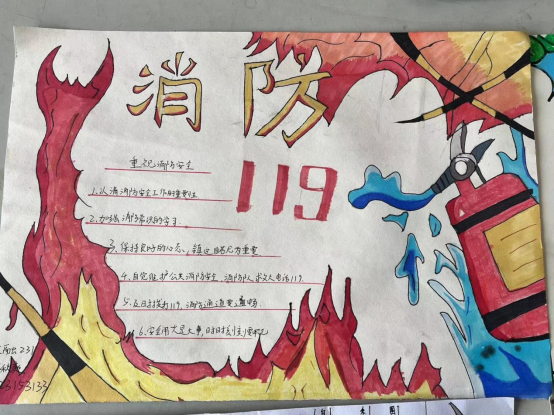 消防
119
重视消防安全
1.认清消防安全工作的重要性
2.加强消防常识的学习
3.保持良好的心态,镇定自若尤为重要
4.自觉维护公共消防安全,消防队求火电话119.
5.火灾拨打119,消防通道要通畅
6.安全用火是大事,时时刻刻要牢记
231
23153133